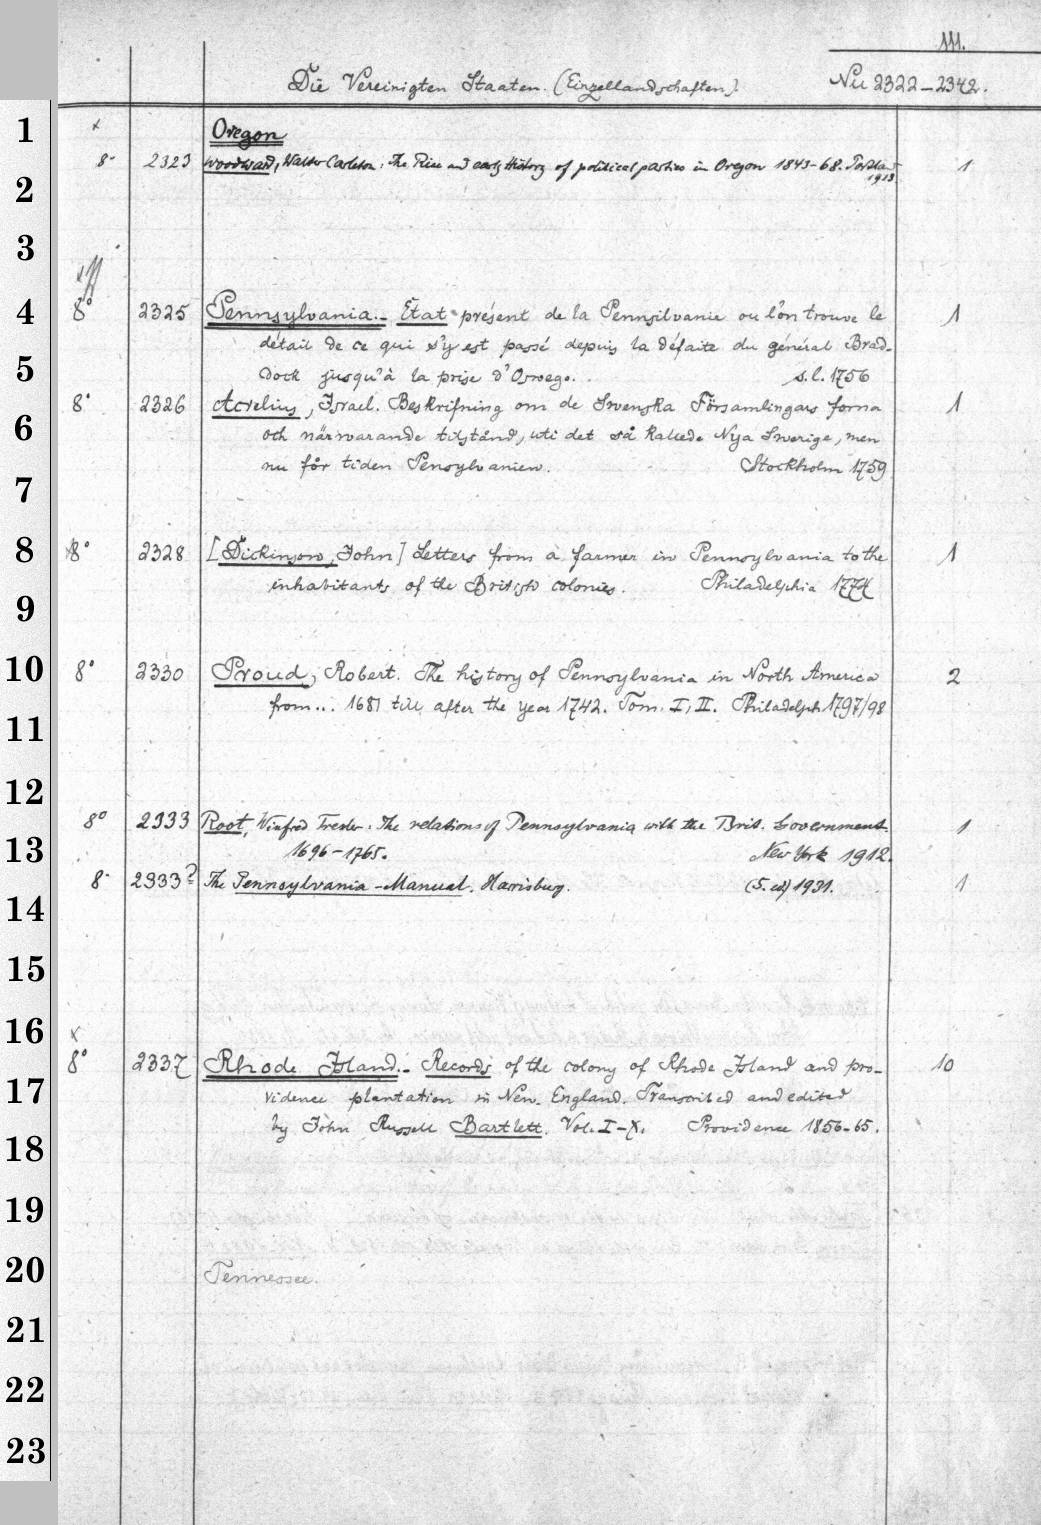 111.
Die Vereinigten Staaten. (Einzellandschaften).
Nu 2322-2342.
1
x
Oregon
8° 2323 Woodward, Walter Carleton: The Rise and early History of political parties in Oregon 1843-68. Portland 1
1913.
2
3
4
8° 2325 Pennsylvania.- Etat présent de la Pennsilvanie ou l'on trouve le 1
détail de ce qui s'y est passé depuis la défaite du général Brad-
5
dock jusqu'à la prise d'Oswego. . s.l. 1756
8° 2326 Acrelius, Israel. Beskrifning om de Swenska Församlingars forna 1
6
och närwarande tilstånd, uti det så kallede Nya Swerige, men
nu för tiden Pensylvanien. Stockholm 1759
7
8
8° 2328 [Dickinson, John] Letters from a farmer in Pennsylvania to the 1
inhabitants of the British colonies. Philadelphia 1774
9
10
8° 2330 Proud, Robert. The history of Pennsylvania in North America 2
from... 1681 till after the year 1742. Tom. I, II. Philadelph. 1797/98
11
12
8° 2333 Root, Winfred Trexler: The relations of Pennsylvania with the Brit. Government. 1
13
1696-1765. New York 1912.
8° 2333? The Pennsylvania-Manual. Harrisburg. (5. ed) 1931. 1
14
15
16
x
8° 2337 Rhode Island.- Records of the colony of Rhode Island and pro- 10
17
vidence plantation in New-England. Transcribed and edited
by John Russell Bartlett. Vol. I-X. Providence 1856-65.
18
19
20
Tennessee.
21
22
23